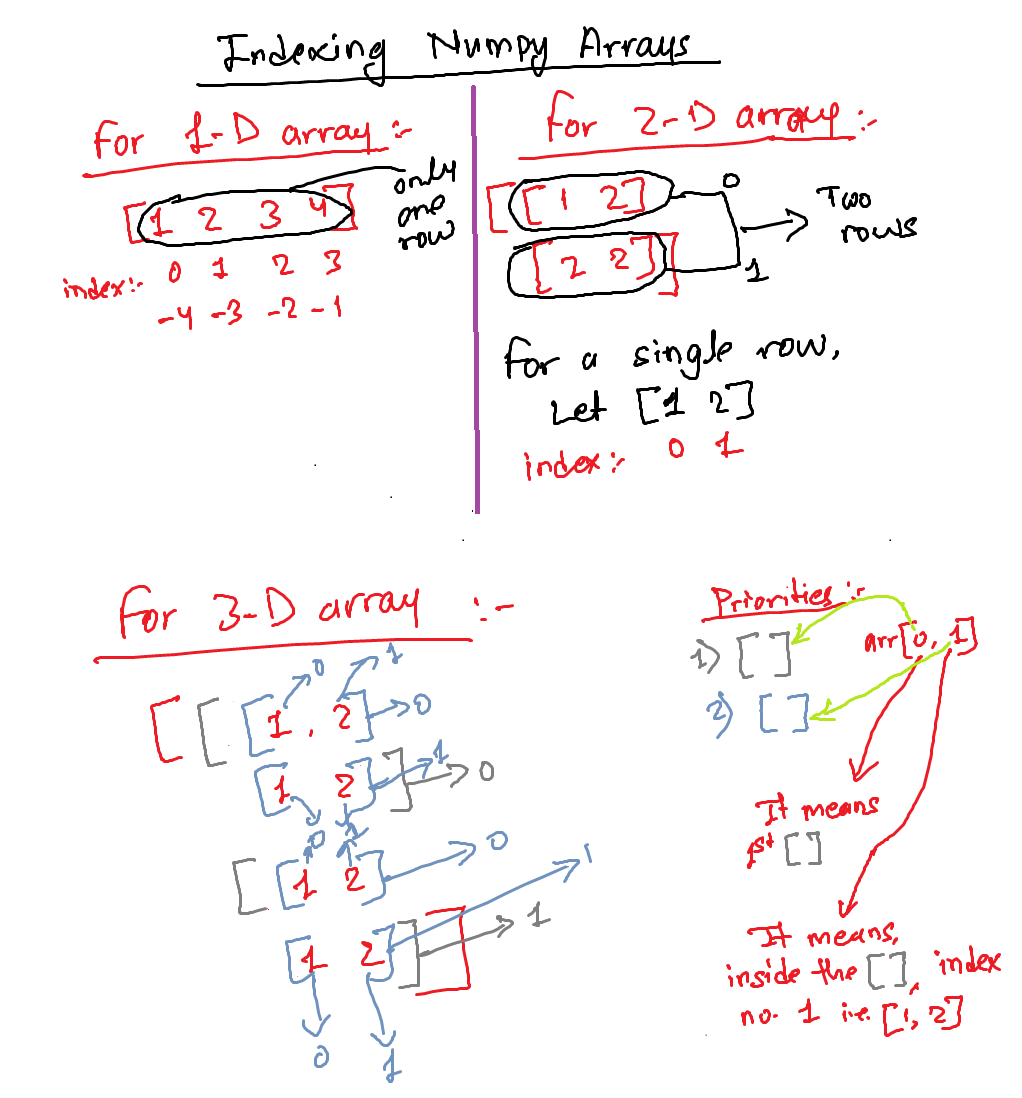 Indexing Numpy Arrays
for 1-D array :-
[1 2 3 4]
only
one
row
index:- 0 1 2 3
-4 -3 -2 -1
for 2-D array :-
[[1 2]
0
[2 2]]
1
Two
rows
for a single row,
Let [1 2]
index:- 0 1
for 3-D array :-
0 1
[[[1, 2]
0
[1 2]]
1
0
0 1
[[1 2]
0
1
[1 2]]]
1
0 1
Priorities :-
arr[0, 1]
1) []
2) []
It means
1st []
It means,
inside the [], index
no. 1 i.e. [1, 2]